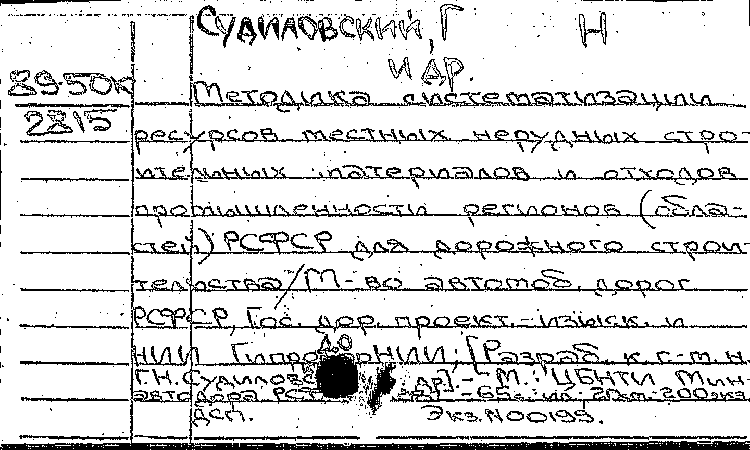 Судиловский, Г Н
и др.
89-50к
2815
Методика систематизации
ресурсов местных нерудных стро-
ительных материалов и отходов
промышленности регионов (обла-
стей) РСФСР для дорожного строи-
тельства/М-во автомоб. дорог
РСФСР, Гос. дор. проект.-изыск. и
НИИ ГипродорНИИ; [Разраб. к.г.-м.н.
Г.Н. Судиловс др].- М.: ЦБНТИ Мин-
автодора РСФ - 65с.: ил; 20см.-200экз.
ДСП. Экз.N00199.